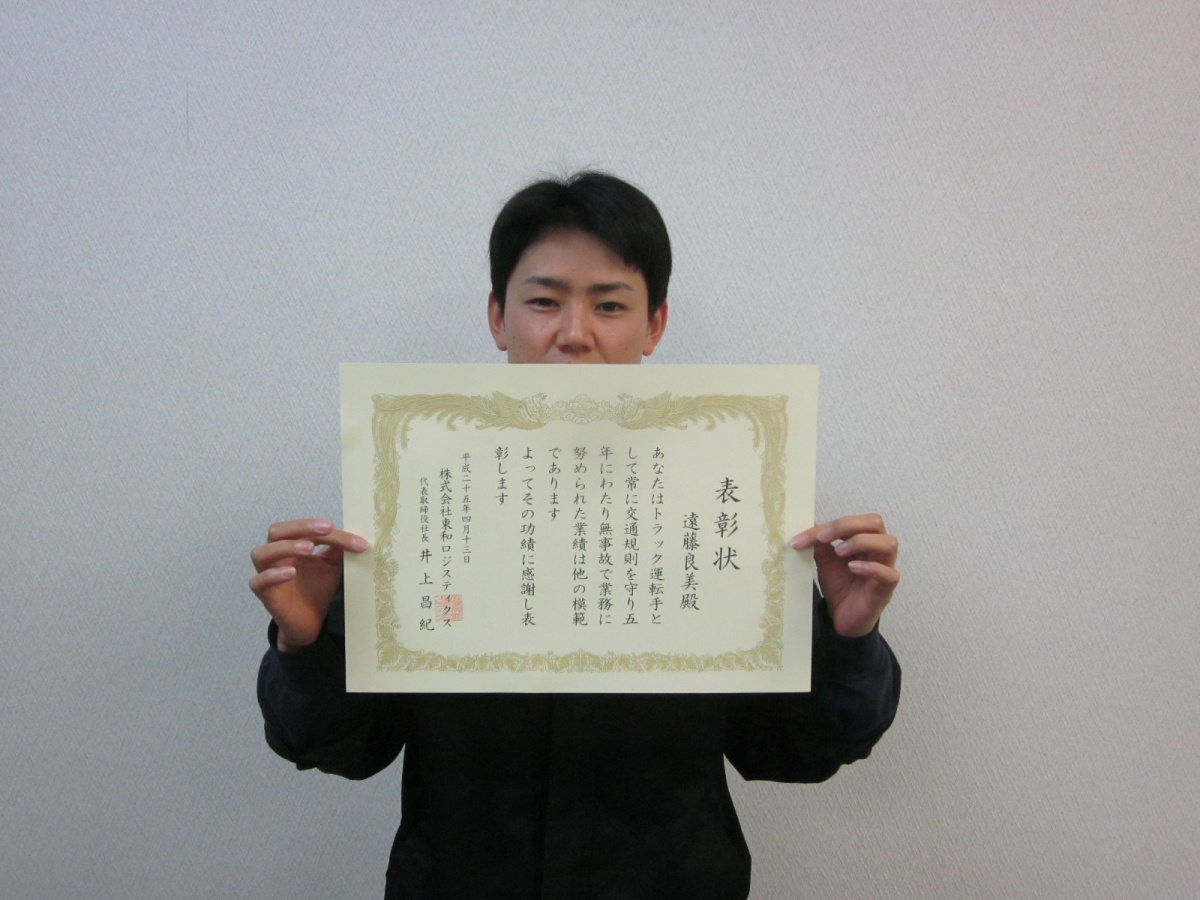 表彰状
遠藤良美殿
あなたはトラック運転手と
して常に交通規則を守り五
年にわたり無事故で業務に
努められた業績は他の模範
であります
よってその功績に感謝し表
彰します
平成二十五年四月十三日
株式会社東和ロジスティクス
代表取締役社長 井上昌紀